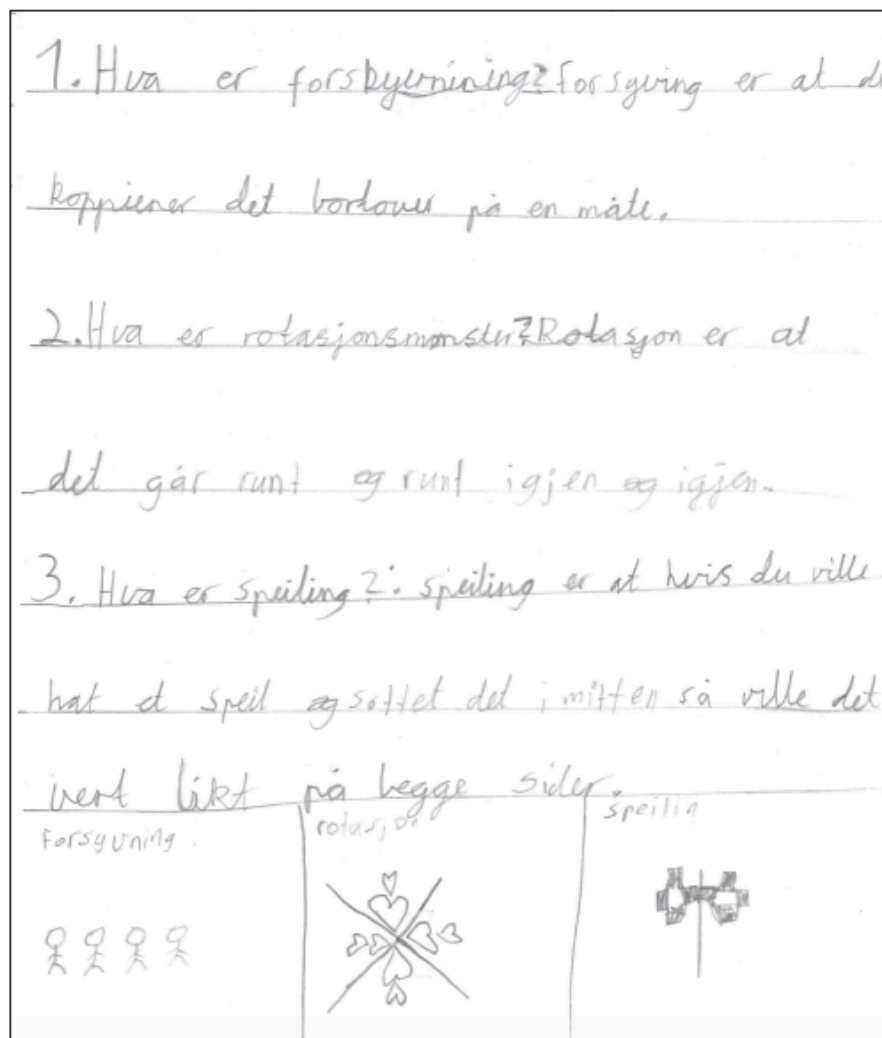 1. Hva er forskyvnining? forsyving er at du
koppiener det bortover på en måte.
2. Hva er rotasjonsmønster? Rotasjon er at
det går runt og runt igjen og igjen.
3. Hva er speiling?: speiling er at hvis du ville
hat et speil og sottet det i mitten så ville det
vert likt på begge sider.
Forsyvning rotasjon speilin